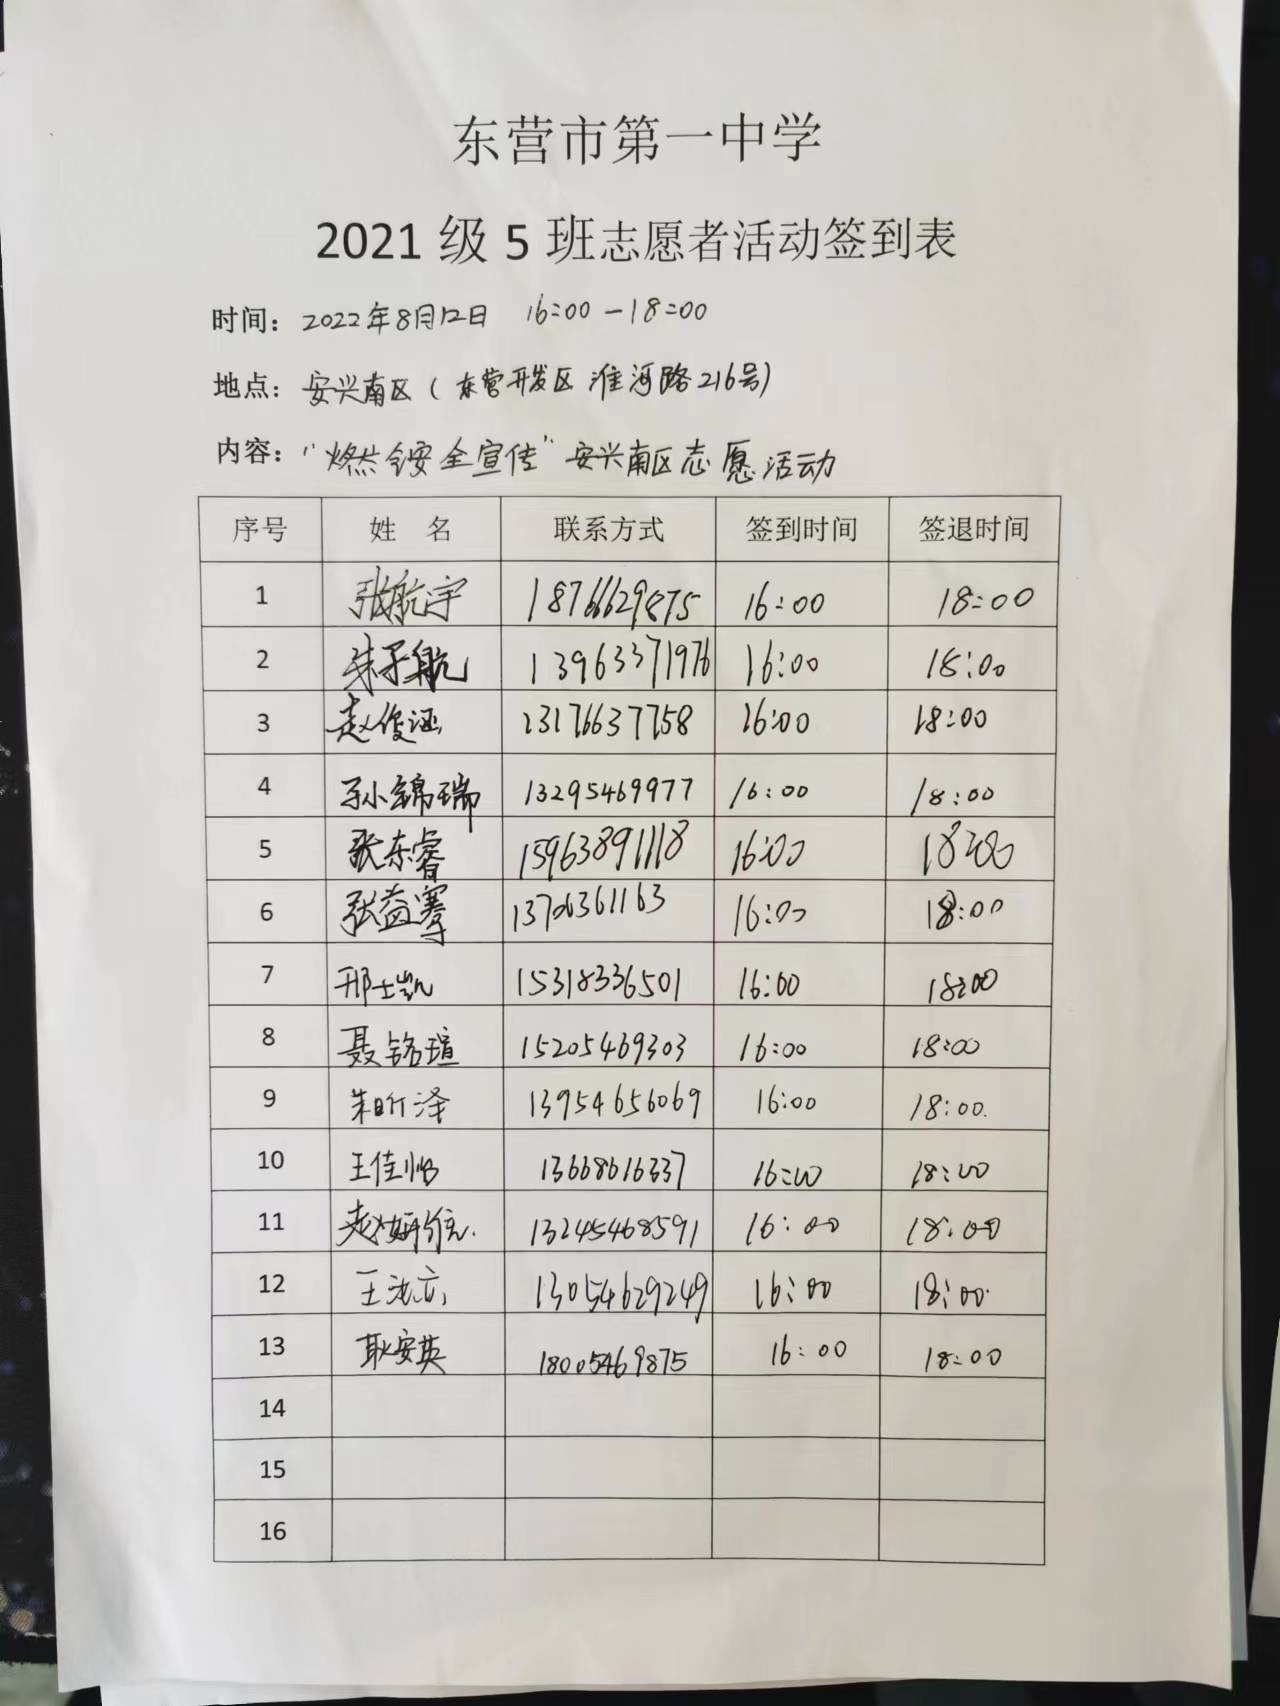 东营市第一中学
2021 级 5 班志愿者活动签到表
时间：2022年8月12日 16:00-18:00
地点：安兴南区（东营开发区淮河路216号）
内容："燃气安全宣传"安兴南区志愿活动
序号 姓 名 联系方式 签到时间 签退时间
1 张航宇 18766629875 16:00 18:00
2 朱子航 13963371976 16:00 18:00
3 赵俊涵 13176637758 16:00 18:00
4 孙锦瑞 13295469977 16:00 18:00
5 张东睿 15963891118 16:00 18:00
6 张益骞 13706361163 16:00 18:00
7 邢士凯 15318336501 16:00 18:00
8 聂铭瑄 15205469303 16:00 18:00
9 朱昕泽 13954656069 16:00 18:00.
10 王佳怡 13668616337 16:00 18:00
11 赵妍 13245468591 16:00 18:00
12 王 13054629249 16:00 18:00
13 耿安英 18005469875 16:00 18:00
14
15
16